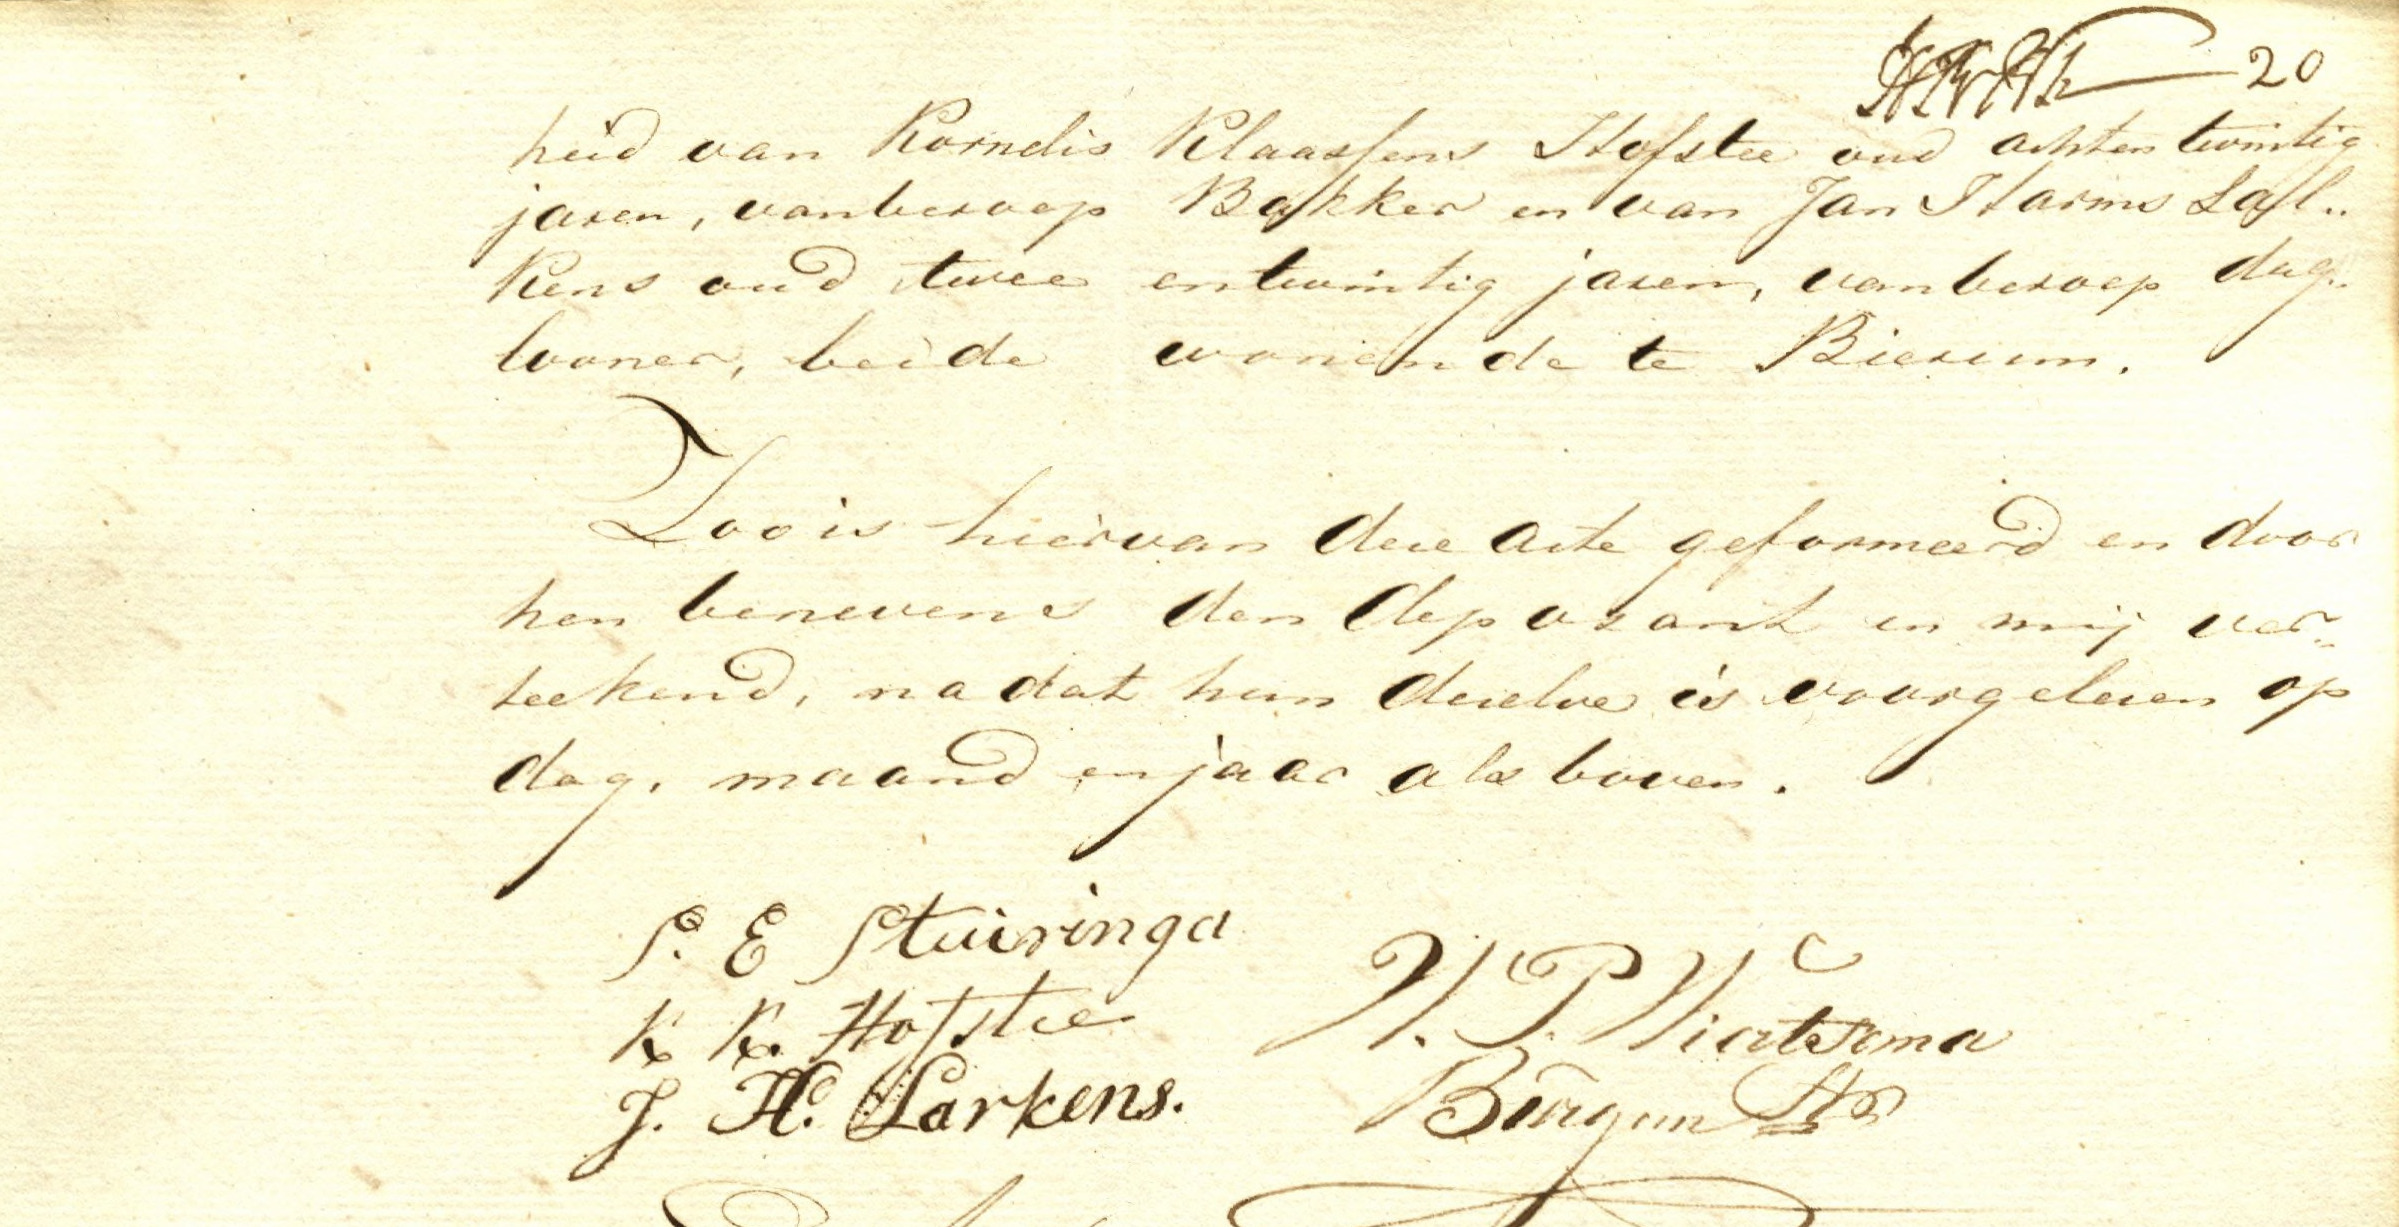 20
heid van Kornelis Klaassens Hofstee oud achten twintig
jaren, van beroep Bakker en van Jan Harms Lal..
kens oud twee en twintig jaren, van beroep dag..
looner, beide wonende te Bierum.
Zoo is hiervan deze acte geformeerd en door
hen benevens den deposant en mij ver..
teekend, na dat hun dezelve is voorgelezen op
dag, maand en jaar als boven.
S. E Stuiringa
K K. Hofstee
J. H. Larkens.
H. P. Wiertsema